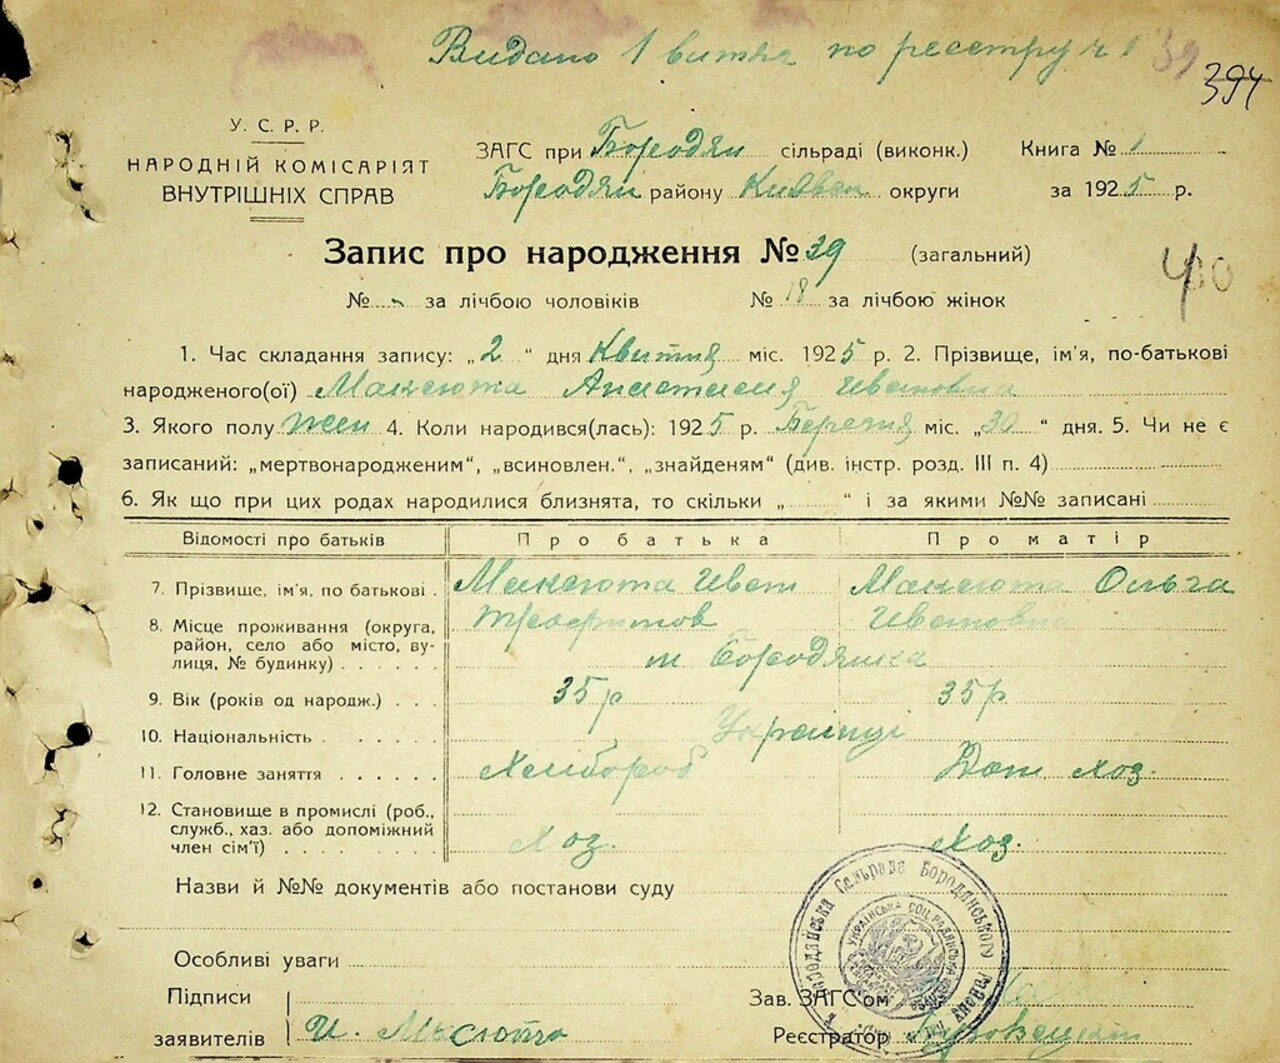 Видано 1 витяг по реєстру ч 1 39
394
У. С. Р. Р.
НАРОДНІЙ КОМІСАРІЯТ
ВНУТРІШНІХ СПРАВ
ЗАГС при Бородян сільраді (виконк.) Книга № 1
Бородян району Київськ округи за 1925 р.
Запис про народження № 39 (загальний)
400
№ за лічбою чоловіків № 18 за лічбою жінок
1. Час складання запису: „2“ дня Квітня міс. 1925 р. 2. Прізвище, ім'я, по-батькові
народженого(ої) Максюта Анастасия Ивановна
3. Якого полу жен 4. Коли народився(лась): 1925 р. Березня міс. „30“ дня. 5. Чи не є
записаний: „мертвонародженим“, „всиновлен.“, „знайденям“ (див. інстр. розд. III п. 4)
6. Як що при цих родах народилися близнята, то скільки „ “ і за якими №№ записані
Відомості про батьків Про батька Про матір
7. Прізвище, ім'я, по батькові . Максюта Иван Максюта Ольга
Трофимов Ивановна
8. Місце проживання (округа,
район, село або місто, ву-
лиця, № будинку) . . . . . . м Бородянка
9. Вік (років од народж.) . . . 35 р 35 р
10. Національність . . . . . . Українці
11. Головне заняття . . . . . . Хлібороб Дом хоз.
12. Становище в промислі (роб.,
служб., хаз. або допоміжний
член сім'ї) . . . . . . . . . Хоз. Хоз.
Назви й №№ документів або постанови суду
Особливі уваги
Підписи
заявителів И.
Зав. ЗАГС'ом
Реєстратор
Бородянська Сільрада Бородянського Району
УКРАЇНСЬКА СОЦ. РАДЯНСЬКА